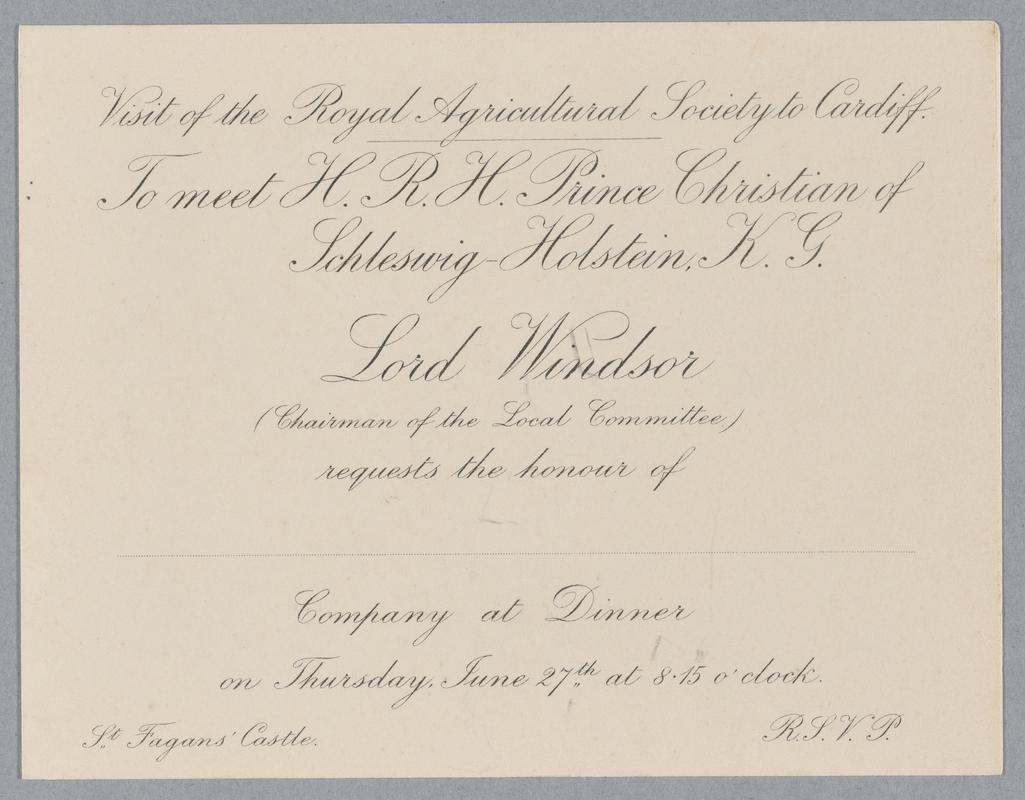 Visit of the Royal Agricultural Society to Cardiff.
To meet H. R. H. Prince Christian of
Schleswig-Holstein, K. G.
Lord Windsor
(Chairman of the Local Committee)
requests the honour of
Company at Dinner
on Thursday, June 27th at 8·15 o'clock.
St Fagans' Castle.
R.S.V.P.